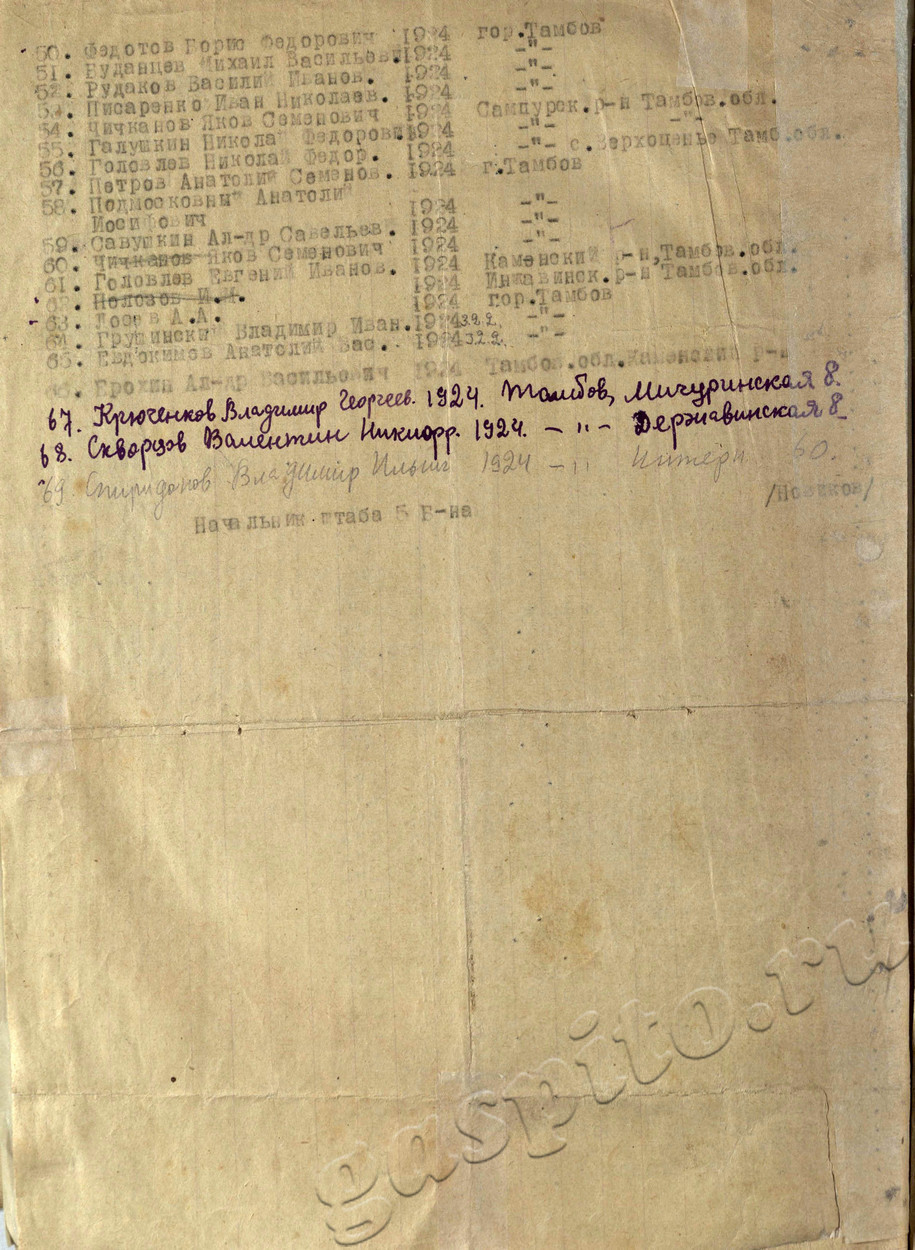 50. Федотов Борис Федорович 1924 гор.Тамбов
51. Буданцев Михаил Васильеви. 1924 -"-
52. Рудаков Василий Иванов. 1924 -"-
53. Писаренко Иван Николаев. 1924 -"-
54. Чичканов Яков Семенович 1924 Сампурск.р-н Тамбов.обл.
55. Галушкин Николай Федорови. 1924 -"- -"-
56. Головлев Николай Федор. 1924 -"- с.Верхоценье Тамб.обл.
57. Петров Анатолий Семенов. 1924 г.Тамбов
58. Подмосковный Анатолий
Иосифович 1924 -"-
59. Савушкин Ал-др Савельев. 1924 -"-
60. Чичканов Яков Семенович 1924 -"-
61. Головлев Евгений Иванов. 1924 Каменский р-н,Тамбов.обл.
62. Полозов И.А. 1924 Инжавинск.р-н Тамбов.обл.
63. Лосев А.А. 1924 гор.Тамбов
64. Грушинский Владимир Иван. 1924 -"-
65. Евдокимов Анатолий Вас.. 1924 -"-
66. Ерохин Ал-др Васильович 1924 Тамбов.обл.Каменский р-н
67. Крюченков Владимир Георгеев. 1924. Тамбов, Мичуринская 8.
68. Скворцов Валентин Никифор. 1924. - " - Державинская 8
69. Спиридонов Владимир Ильич 1924 - " Интерн 60.
Начальник штаба 5 Б-на /Новиков/
gaspito.ru